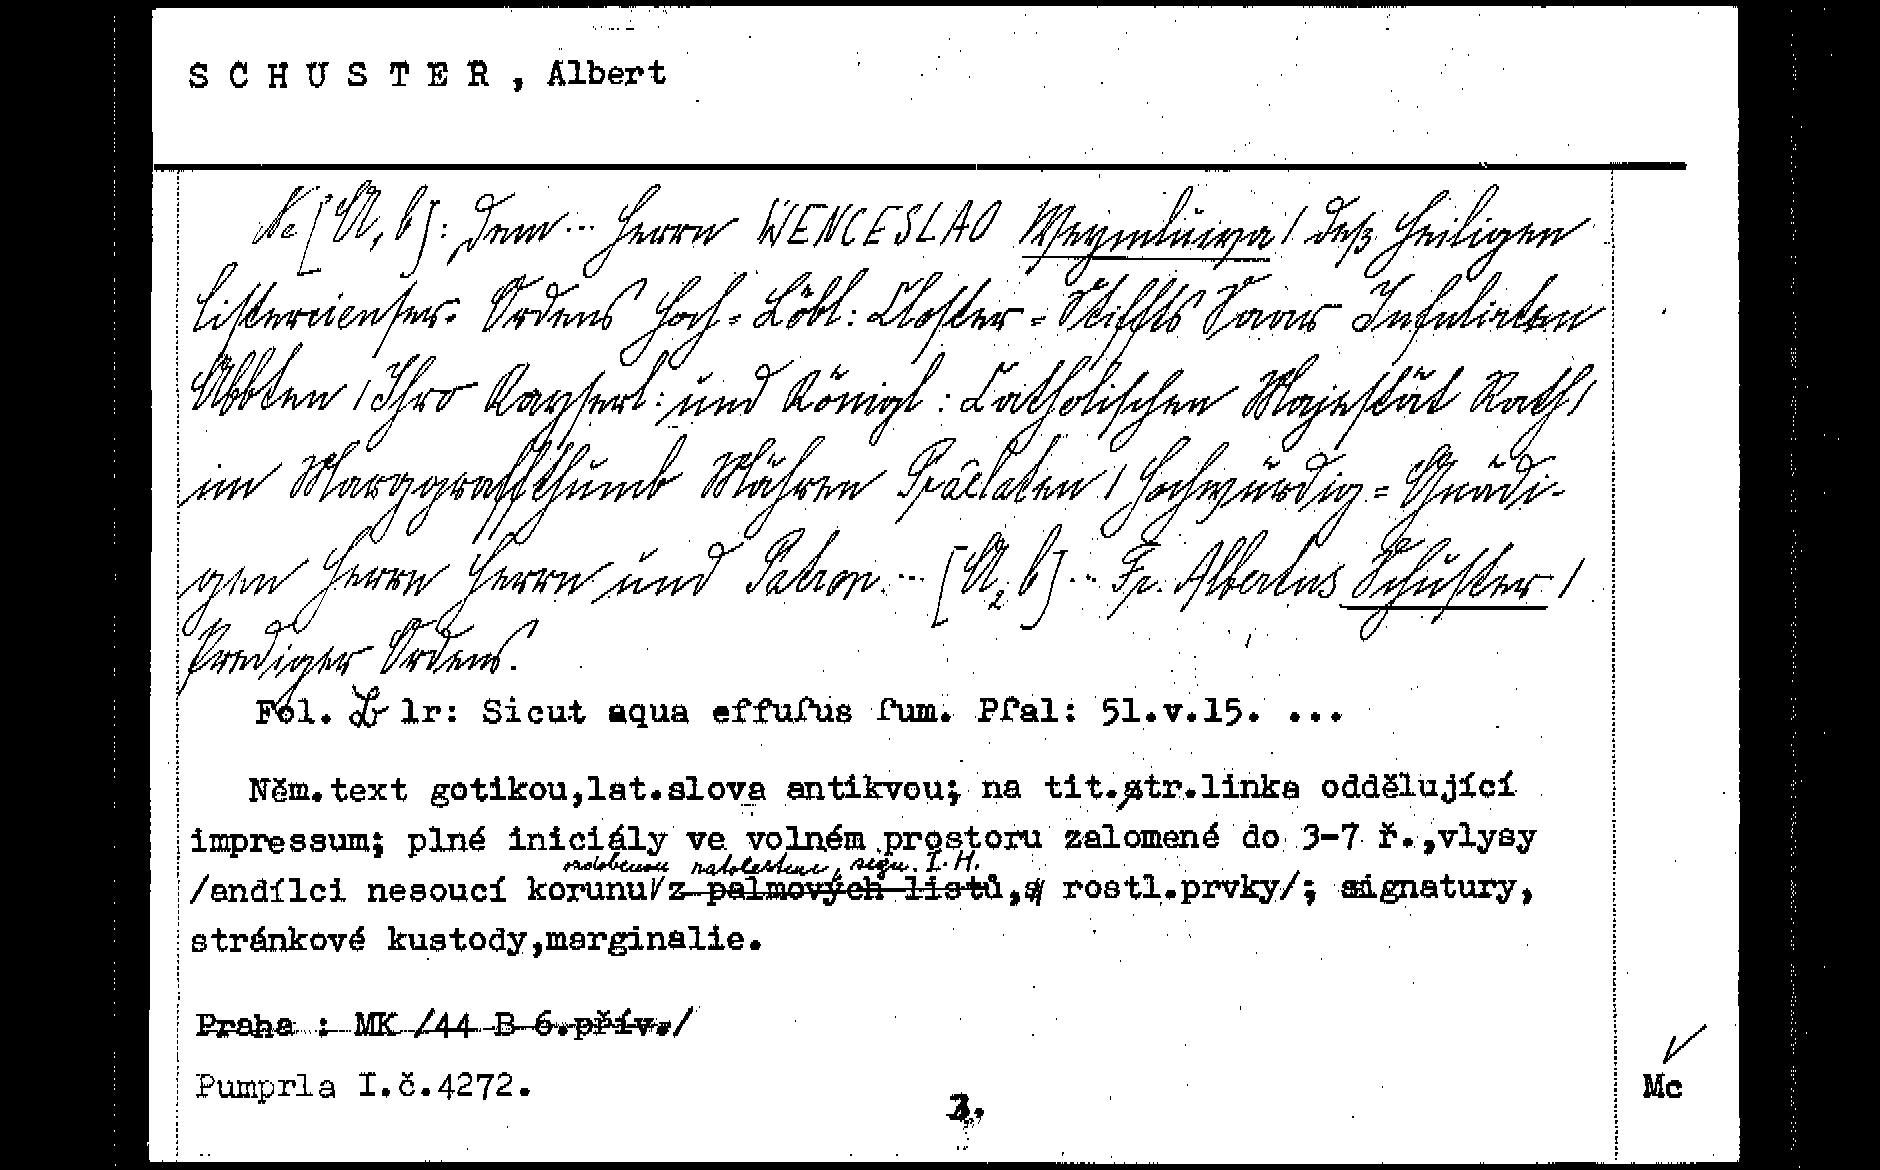 SCHUSTER, Albert
Na [A, b]: Dem ... Herrn WENCESLAO Weymlůwa / deß Heiligen
Cistercienser= Ordens Hoch= Löbl: Closter= Stiffts Saar Infulirten
Abbten / Ihro Kayserl: und Königl: Catholischen Majestät Rath /
im Marggraffthumb Mähren Praelaten / Hochwürdig= Gnädi-
gen Herrn Herrn und Patron ... [A2 b] ... Fr. Albertus Schuster /
Prediger Ordens.
Fol. 1r: Sicut aqua effuſus ſum. Pſal: 51.v.15. ...
Něm.text gotikou,lat.slova antikvou; na tit.str.linka oddělující
impressum; plné iniciály ve volném prostoru zalomené do 3-7 ř.,vlysy
ozdobenou ratolestmi, sign. I. H.
/andílci nesoucí korunu z palmových listů, rostl.prvky/; signatury,
stránkové kustody,marginalie.
Praha : MK /44 B 6.přív./
Pumprla I.č.4272.
Mc